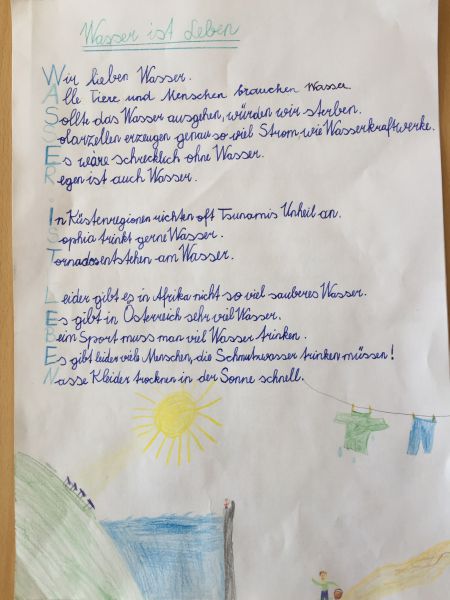 Wasser ist Leben
Wir lieben Wasser.
Alle Tiere und Menschen brauchen Wasser
Sollte das Wasser ausgehen, würden wir sterben.
Solarzellen erzeugen genau so viel Strom wie Wasserkraftwerke.
Es wäre schrecklich ohne Wasser.
Regen ist auch Wasser.
In Küstenregionen richten oft Tsunamis Unheil an.
Sophia trinkt gerne Wasser.
Tornados entstehen am Wasser.
Leider gibt es in Afrika nicht so viel sauberes Wasser.
Es gibt in Österreich sehr viel Wasser.
Beim Sport muss man viel Wasser trinken.
Es gibt leider viele Menschen, die Schmutzwasser trinken müssen!
Nasse Kleider trocknen in der Sonne schnell.